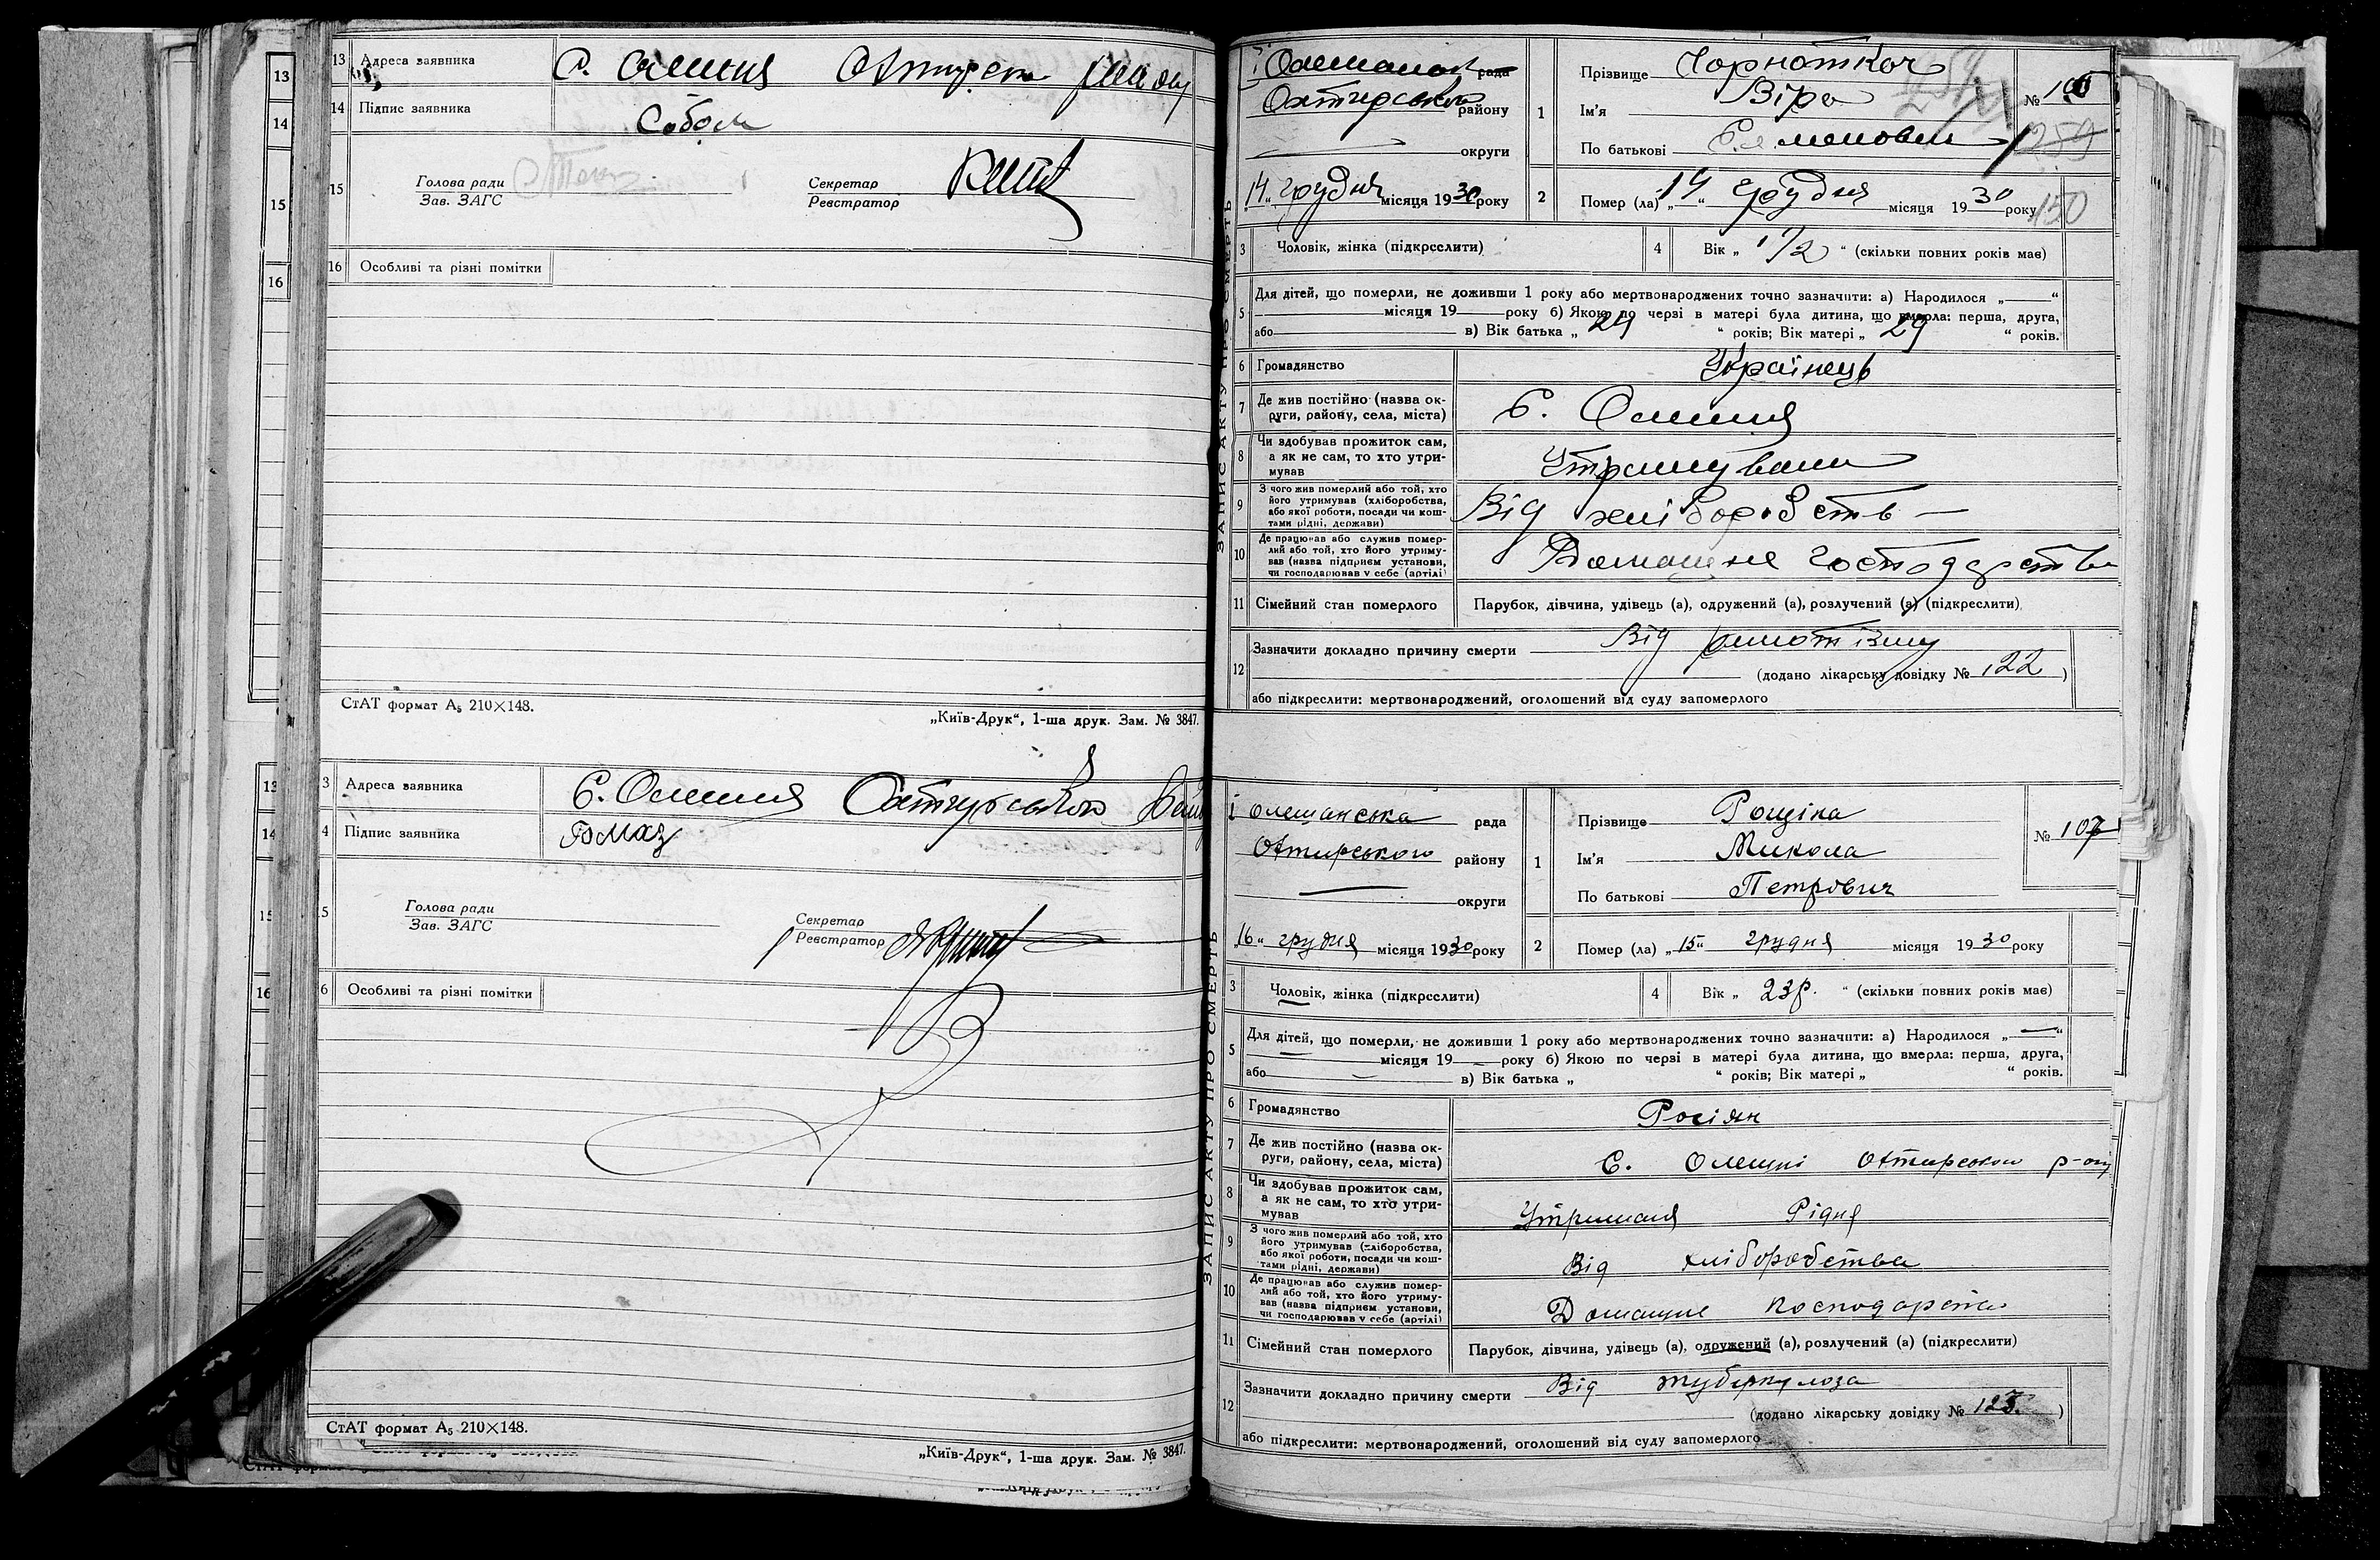 13 Адреса заявника с. Олешня Охтирськ району
14 Підпис заявника Соболь
15 Голова ради
Зав. ЗАГС
Секретар
Реєстратор
16 Особливі та різні помітки
СтАТ формат А5 210×148.
„Київ-Друк“, 1-ша друк. Зам. № 3847.
3 Адреса заявника С. Олешня Охтирського
4 Підпис заявника
5 Голова ради
Зав. ЗАГС
Секретар
Реєстратор
6 Особливі та різні помітки
СтАТ формат А5 210×148.
„Київ-Друк“, 1-ша друк. Зам. № 3847.
13
14
15
16
13
14
15
16
ЗАПИС АКТУ ПРО СМЕРТЬ
рада
Охтирського району
округи
„14“ грудня місяця 1930 року
1 Прізвище Чорноткач
Ім'я Віра
По батькові
№
259
150
2 Помер (ла) „14“ грудня місяця 1930 року
3 Чоловік, жінка (підкреслити)
4 Вік „ 1½ “ (скільки повних років має)
5 Для дітей, що померли, не доживши 1 року або мертвонароджених точно зазначити: а) Народилося „ “
місяця 19 року б) Якою по черзі в матері була дитина, що вмерла: перша, друга,
або в) Вік батька „ 29 “ років; Вік матері „ 29 “ років.
6 Громадянство Українець
7 Де жив постійно (назва ок-
руги, району, села, міста) С. Олешня
8 Чи здобував прожиток сам,
а як не сам, то хто утри-
мував
9 З чого жив померлий або той, хто
його утримував (хліборобства,
або якої роботи, посади чи кош-
тами рідні, держави) Від хліборобств
10 Де працював або служив помер-
лий або той, хто його утриму-
вав (назва підприєм установи,
чи господарював у себе (артілі) Домашнє господарство
11 Сімейний стан померлого Парубок, дівчина, удівець (а), одружений (а), розлучений (а) (підкреслити)
12 Зазначити докладно причину смерти Від
(додано лікарську довідку № 122 )
або підкреслити: мертвонароджений, оголошений від суду запомерлого
ЗАПИС АКТУ ПРО СМЕРТЬ
і олешанська рада
Охтирського району
округи
„16“ грудня місяця 1930 року
1 Прізвище Рощіна
Ім'я Микола
По батькові Петрович
№ 107
2 Помер (ла) „15“ грудня місяця 1930 року
3 Чоловік, жінка (підкреслити)
4 Вік „ 23р. “ (скільки повних років має)
5 Для дітей, що померли, не доживши 1 року або мертвонароджених точно зазначити: а) Народилося „ “
місяця 19 року б) Якою по черзі в матері була дитина, що вмерла: перша, друга,
або в) Вік батька „ “ років; Вік матері „ “ років.
6 Громадянство Росіян
7 Де жив постійно (назва ок-
руги, району, села, міста) С. Олешні Охтирського р-ну
8 Чи здобував прожиток сам,
а як не сам, то хто утри-
мував Рідня
9 З чого жив померлий або той, хто
його утримував (хліборобства,
або якої роботи, посади чи кош-
тами рідні, держави) Від хліборобства
10 Де працював або служив помер-
лий або той, хто його утриму-
вав (назва підприєм установи,
чи господарював у себе (артілі) Домашнє
11 Сімейний стан померлого Парубок, дівчина, удівець (а), одружений (а), розлучений (а) (підкреслити)
12 Зазначити докладно причину смерти Від туберкулоза
(додано лікарську довідку № 123. )
або підкреслити: мертвонароджений, оголошений від суду запомерлого